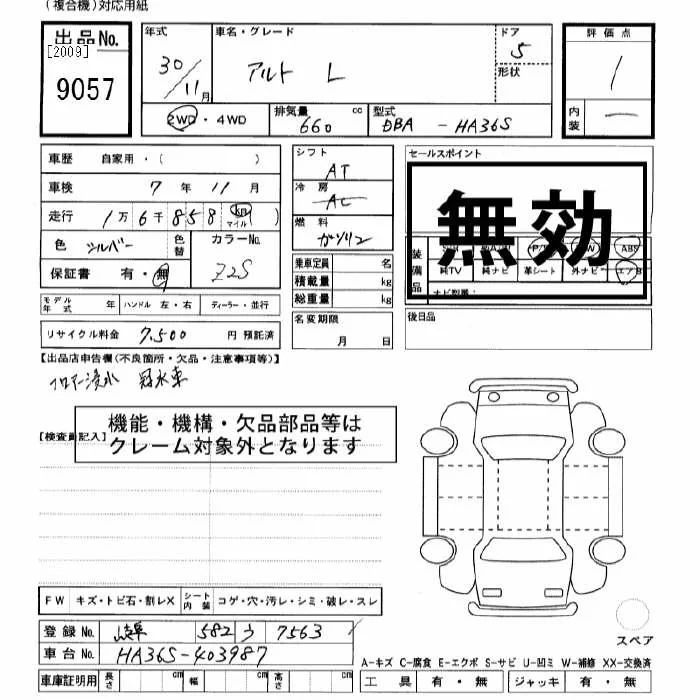 (複合機)対応用紙
出品No. 年式 車名・グレード ドア 評価点
[2009] 9057 30/11月 アルト L 5 形状 1
2WD・4WD 排気量 660 cc 型式 DBA - HA36S 内装 一
車歴 自家用・( )
車検 7年 11月
走行 1万 6千 858 km マイル
色 シルバー 色替 カラーNo. Z2S
保証書 有・無
シフト AT
冷房 AC
燃料 ガソリン
乗車定員 名
積載量 kg
総重量 kg
セールスポイント
無効
装備品 P/S P/W ABS
純TV 純ナビ 革シート 外ナビ エアB
ナビ型番:
モデル年式 年 ハンドル 左・右 ディーラー・並行
名変期限 月 日
後日品
リサイクル料金 7,500 円 預託済
【出品店申告欄(不良箇所・欠品・注意事項等)】
フロアー浸水 冠水車
機能・機構・欠品部品等は
クレーム対象外となります
【検査員記入】
FW キズ・トビ石・割レX シート内装 コゲ・穴・汚レ・シミ・破レ・スレ
スペア
登録No. 岐阜 582 ウ 7563
車台No. HA36S-403987
A-キズ C-腐食 E-エクボ S-サビ U-凹ミ W-補修 XX-交換済
車庫証明用 長さ cm 幅 cm 高さ cm 工具 有・無 ジャッキ 有・無